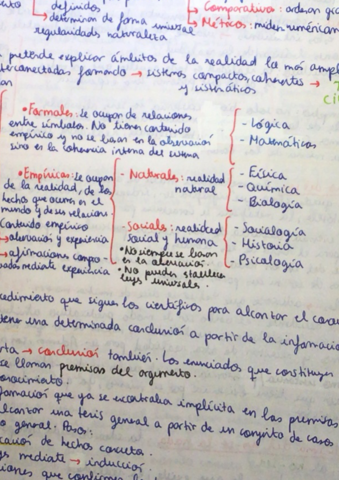 definidos
determinan de forma universal
regularidades naturaleza
Comparativos: ordenan
Métricos: miden numéricamen
pretende explicar ámbitos de la realidad lo más ampl
terconectadas formando → sistemas compactos, coherentes →
y sistemáticos
• Formales: se ocupan de relaciones
entre símbolos. No tienen contenido
empírico y no se basan en la observación
sino en la coherencia interna del sistema
- Lógica
- Matemáticas
• Empíricas: se ocupan
de la realidad, de los
hechos que ocurren en el
mundo y de sus relaciones
Contenido empírico
→ observación y experiencia
→ afirmaciones compro
badas mediante experiencia
- Naturales: realidad
natural
- Física
- Química
- Biología
- Sociales: realidad
social y humana
• No siempre se basan
en la observación.
• No pueden establecer
leyes universales.
- Sociología
- Historia
- Psicología
cedimiento que siguen los científicos para alcanzar el cono
tiene una determinada conclusión a partir de la informació
→ conclusión también. Los enunciados que constituyen
se llaman premisas del argumento.
formación que ya se encontraba implícita en las premisas
alcanzar una tesis general a partir de un conjunto de casos
o general. Pasos:
de hechos concretos.
mediante → inducción.